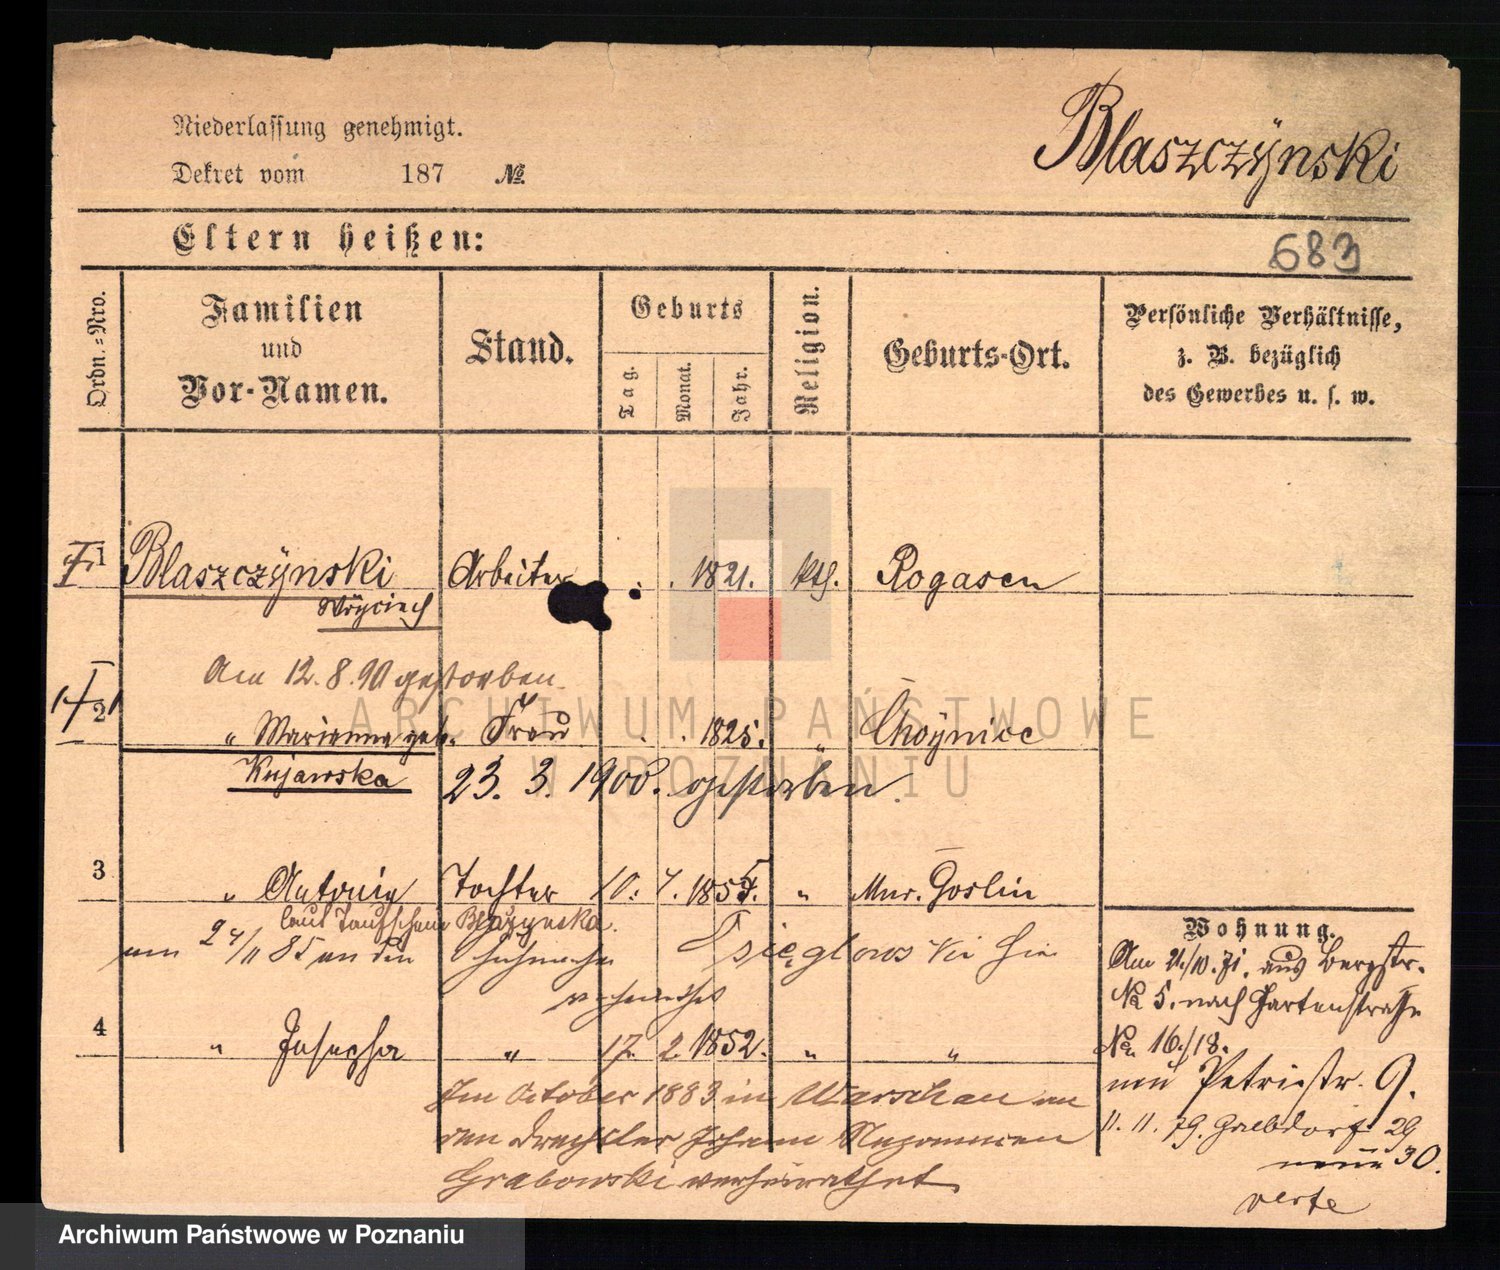 Niederlassung genehmigt.
Dekret vom 187 №.
Blaszczÿnski
Eltern heißen:
683
Ordn.-Nro.
Familien und Vor-Namen.
Stand.
Geburts
Tag.
Monat.
Jahr.
Religion.
Geburts-Ort.
Persönliche Verhältnisse, z. B. bezüglich des Gewerbes u. s. w.
1 Blaszczÿnski Arbeiter . . 1821. kth. Rogasen
Woÿciech
Am 12.8.90 gestorben
2 " Marianna geb. Frau . . 1825. " Choÿnice
Kujawska 23. 3. 1900. gestorben.
3 " Antonie Tochter 10. 7. 1854. " Mur. Goslin
laut Taufschein
am 24/11 85 an den
verheirathet
4 " Josepha " 17. 2. 1852. " "
Im October 1883 in Warschau an
den Drechsler Johann
Grabowski verheirathet
Wohnung.
Am 21./10. 71. aus Bergstr.
No 5. nach Gartenstraße
No 16./18.
Petristr. 9.
11. 11. 79. 29
30.
verte
ARCHIWUM PAŃSTWOWE
W POZNANIU
Archiwum Państwowe w Poznaniu